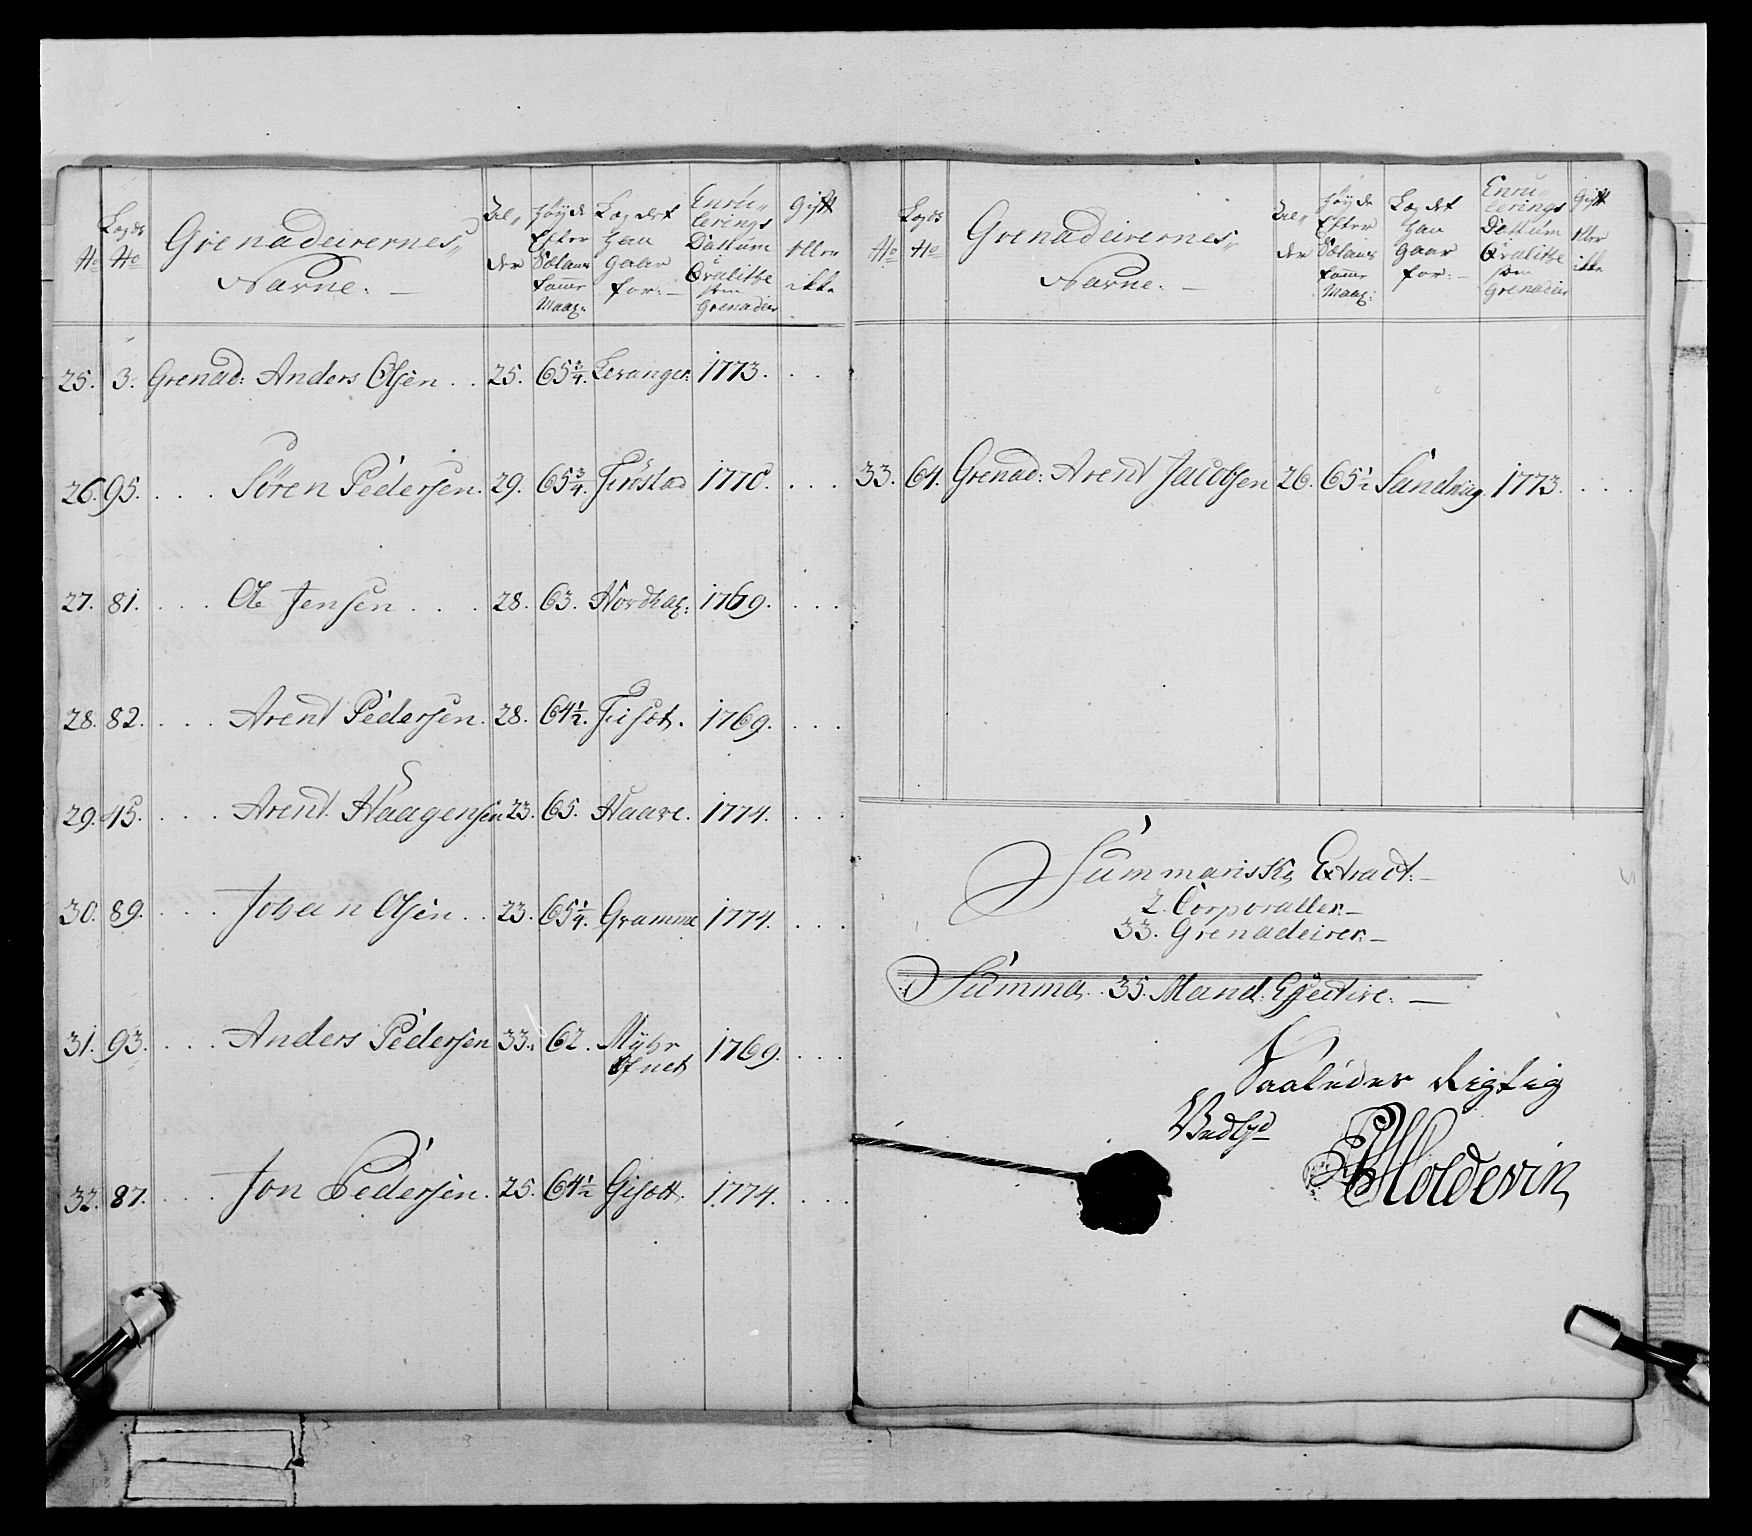 No
Lægds No
Grenadeirernes
Navne.
Al-
der
Høyde
Efter
Maaḡ.
Lægdet
Han
Gaar
for.
Enrul-
lerings
Dattum
Qvalithe
som
Grenadeir
Gift
Eller
ikke
25. 3. Grenad: Anders Olsen .. 25. 65 3/4. Levanger. 1773. . .
26. 95. . . . Søren Pedersen. 29. 65 3/4. 1770. . . .
27. 81. . . . Ole Jensen . . . 28. 63. Nordhaḡ: 1769. . . .
28. 82. . . . Arent Pedersen. 28. 64 1/2. 1769. . . .
29. 45. . . . Arent Haagensen 23. 65. Haare. 1774. . . .
30. 89. . . . Johan Olsen .. 23. 65 1/4. Gramme 1774. . . .
31. 93. . . . Anders Pedersen 33. 62. Myhr 1769. . . .
32. 87. . . . Jon Pedersen. 25. 64 1/2 1774. . . .
No
Lægds No
Grenadeirernes
Navne.
Al-
der
Høyde
Efter
Maaḡ:
Lægdet
Han
Gaar
for.
Enru-
lerings
Dattum
Qvalithe
som
Grenadeir
Gift
Eller
ikke
33. 64. Grenad: Arent Jacobsen 26. 65 1/2 Sandviig. 1773. . . .
Summarisk Extract.
2. Corporaller.
33. Grenadeirer.
Summa. 35. Mand. Effective.
Saaleder Rigtig
Holdevin